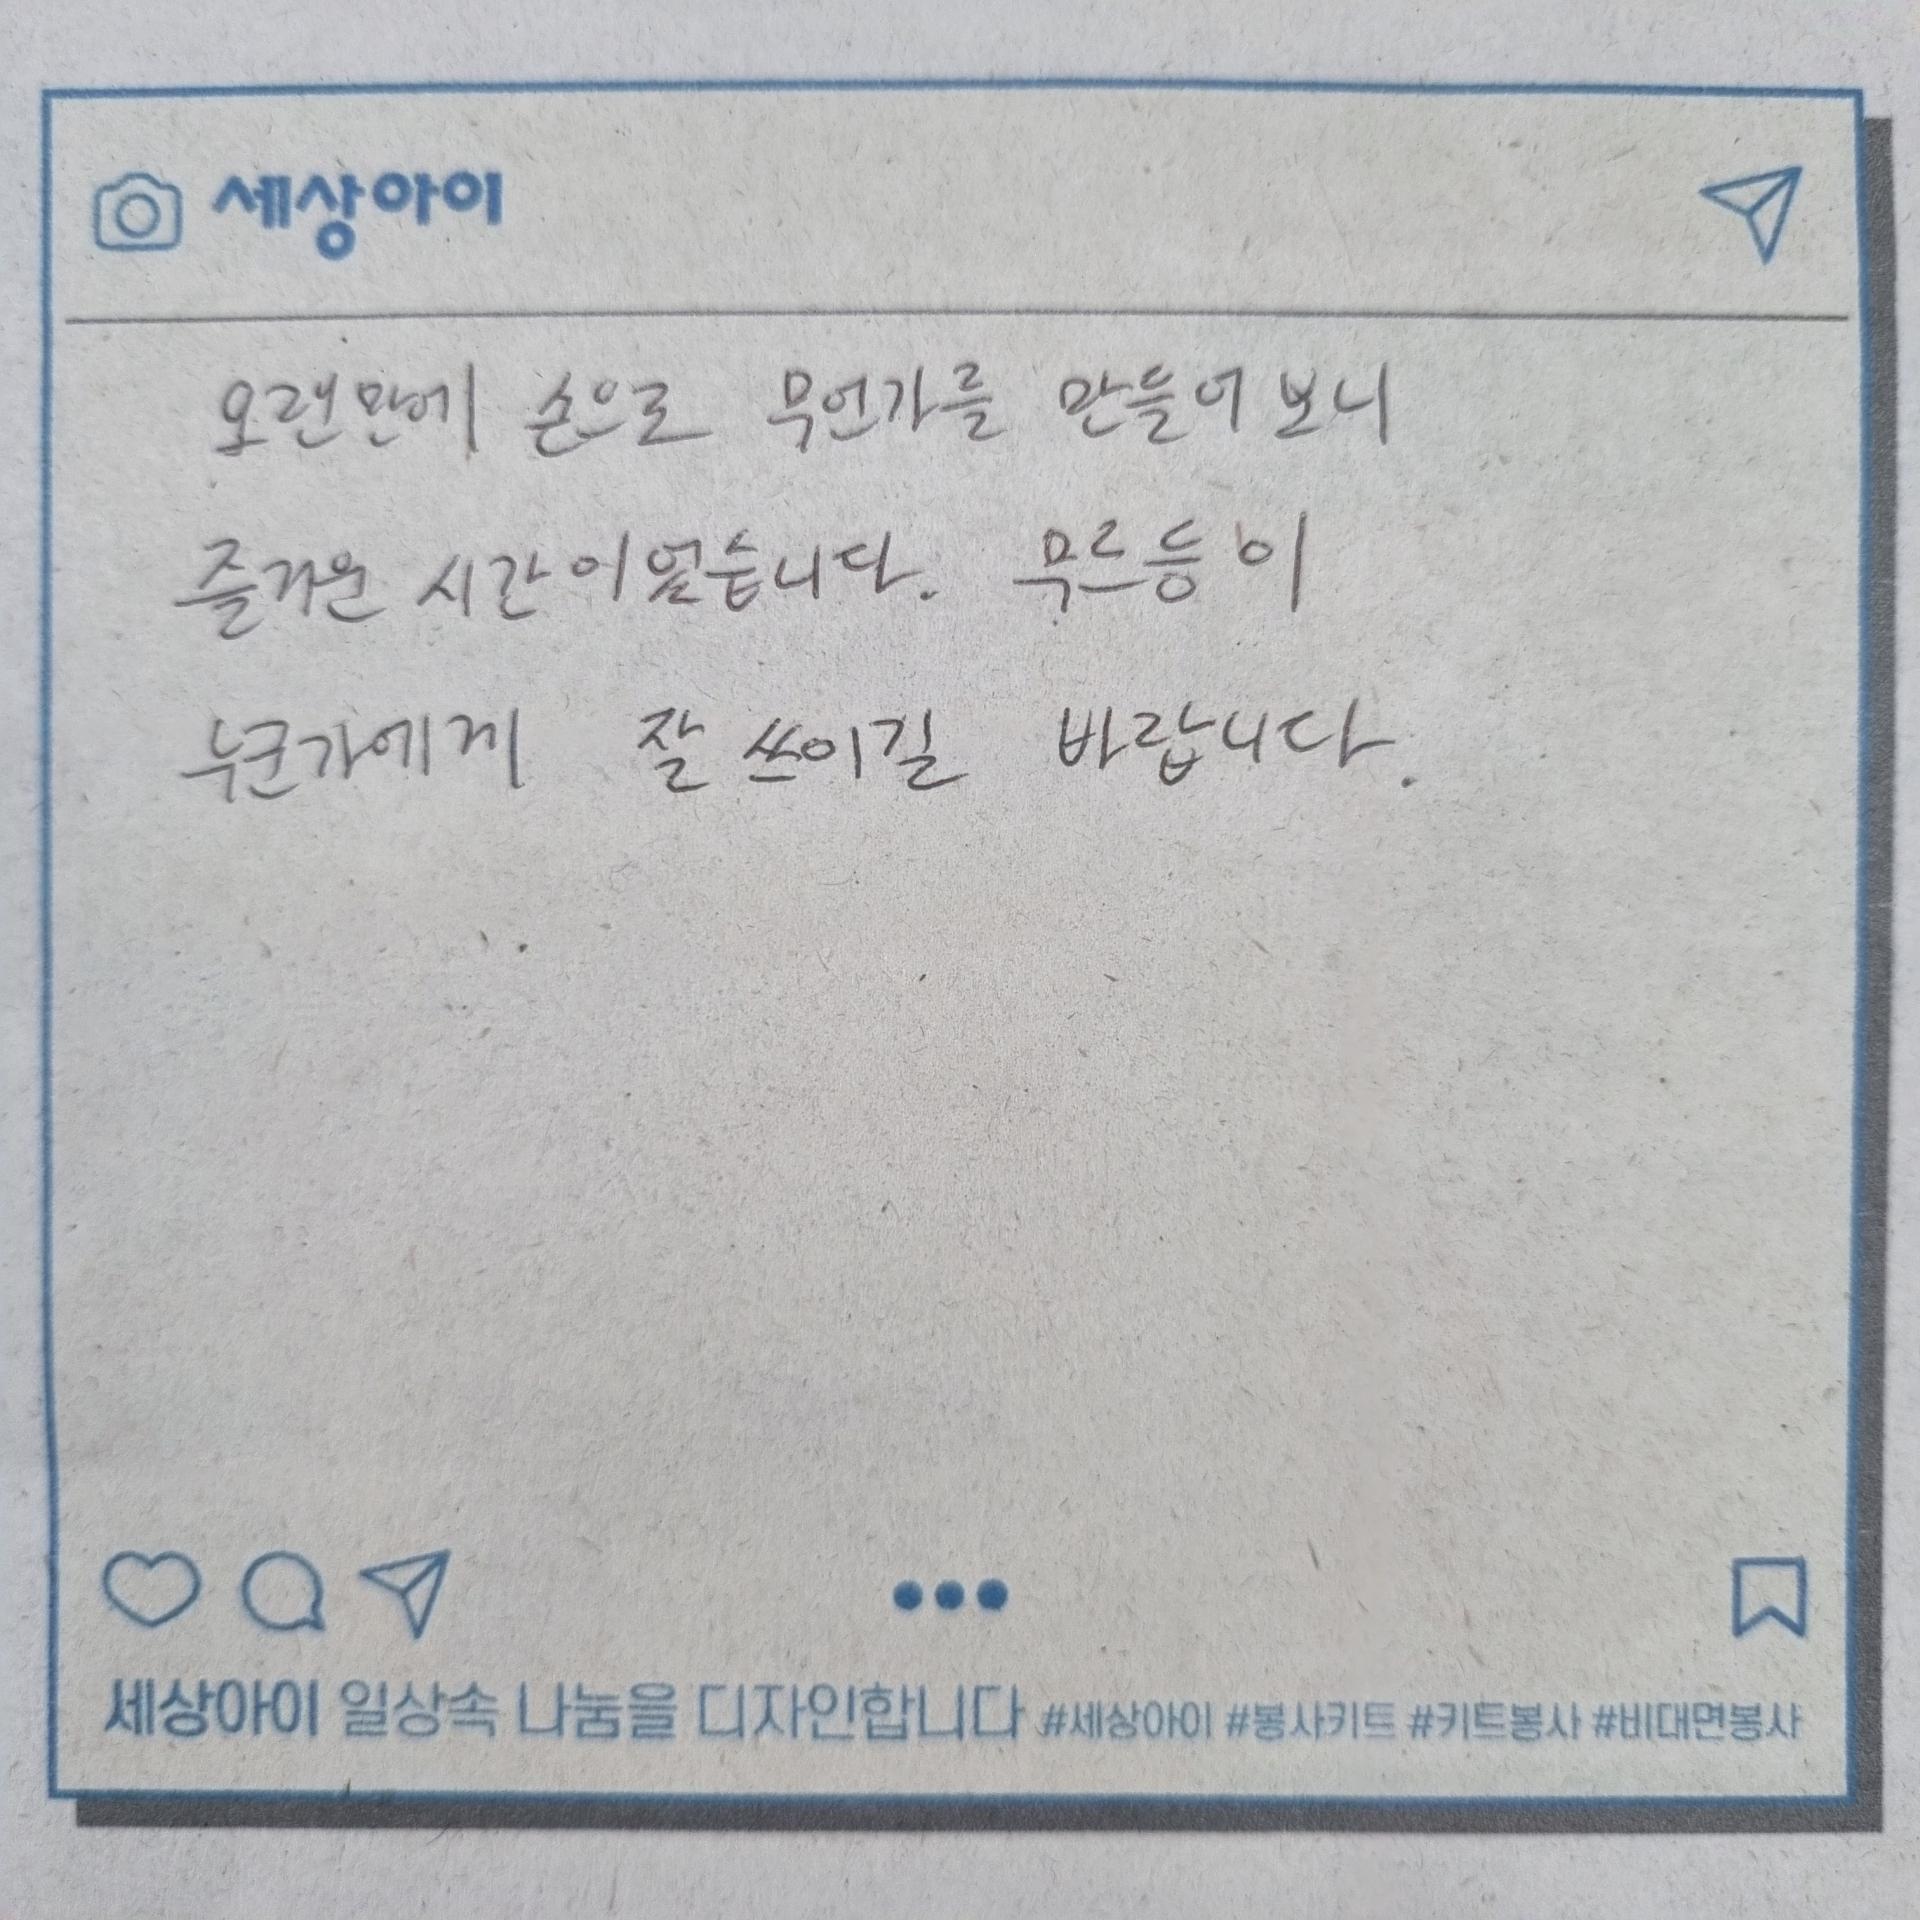 세상아이
오랜만에 손으로 무언가를 만들어 보니
즐거운 시간이었습니다. 무르등이
누군가에게 잘 쓰이길 바랍니다.
세상아이 일상속 나눔을 디자인합니다 #세상아이 #봉사키트 #키트봉사 #비대면봉사